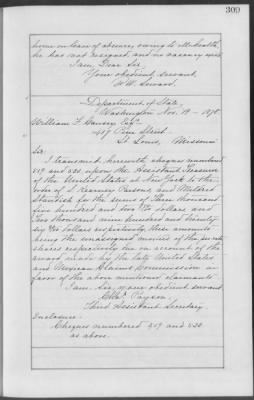 309
home on leave of absence, owing to ill health,
he has not resigned, and no vacancy exists.
I am, Dear Sir,
Your obedient servant,
F. W. Seward.
Department of State,
Washington, Nov. 19 - 1878.
William F. Esq.
417 Pine Street.
St. Louis, Missouri
Sir:
I transmit herewith cheques numbered
and 520, upon the Assistant Treasurer
of the United States at New York to the
order of J. Kearney Parsons, and Mildred
Standish for the sums of Three thousand
five hundred and two dollars and
Two thousand nine hundred and twenty
six dollars respectively, these amounts
being the unassigned moieties of the pro rata
shares respectively due on account of the
award made by the late United States
and Mexican Claims Commission in
favor of the above mentioned claimants.
I am, Sir, your obedient servant
Chas. Payson.
Third Assistant Secretary
Enclosure.
Cheques numbered and 520
as above.